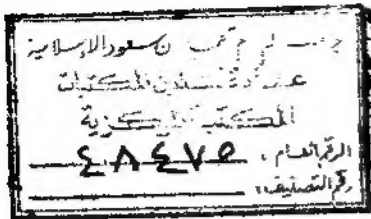 سعود الإسلامية
عمادة شئون المكتبات
المكتبة المركزية
الرقم العام : ٤٨٤٧٥
رقم التصنيف :